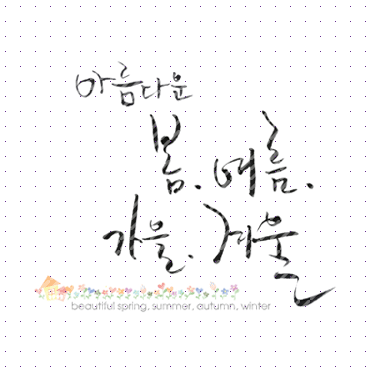 아름다운
봄. 여름.
가을. 겨울
beautiful spring, summer, autumn, winter